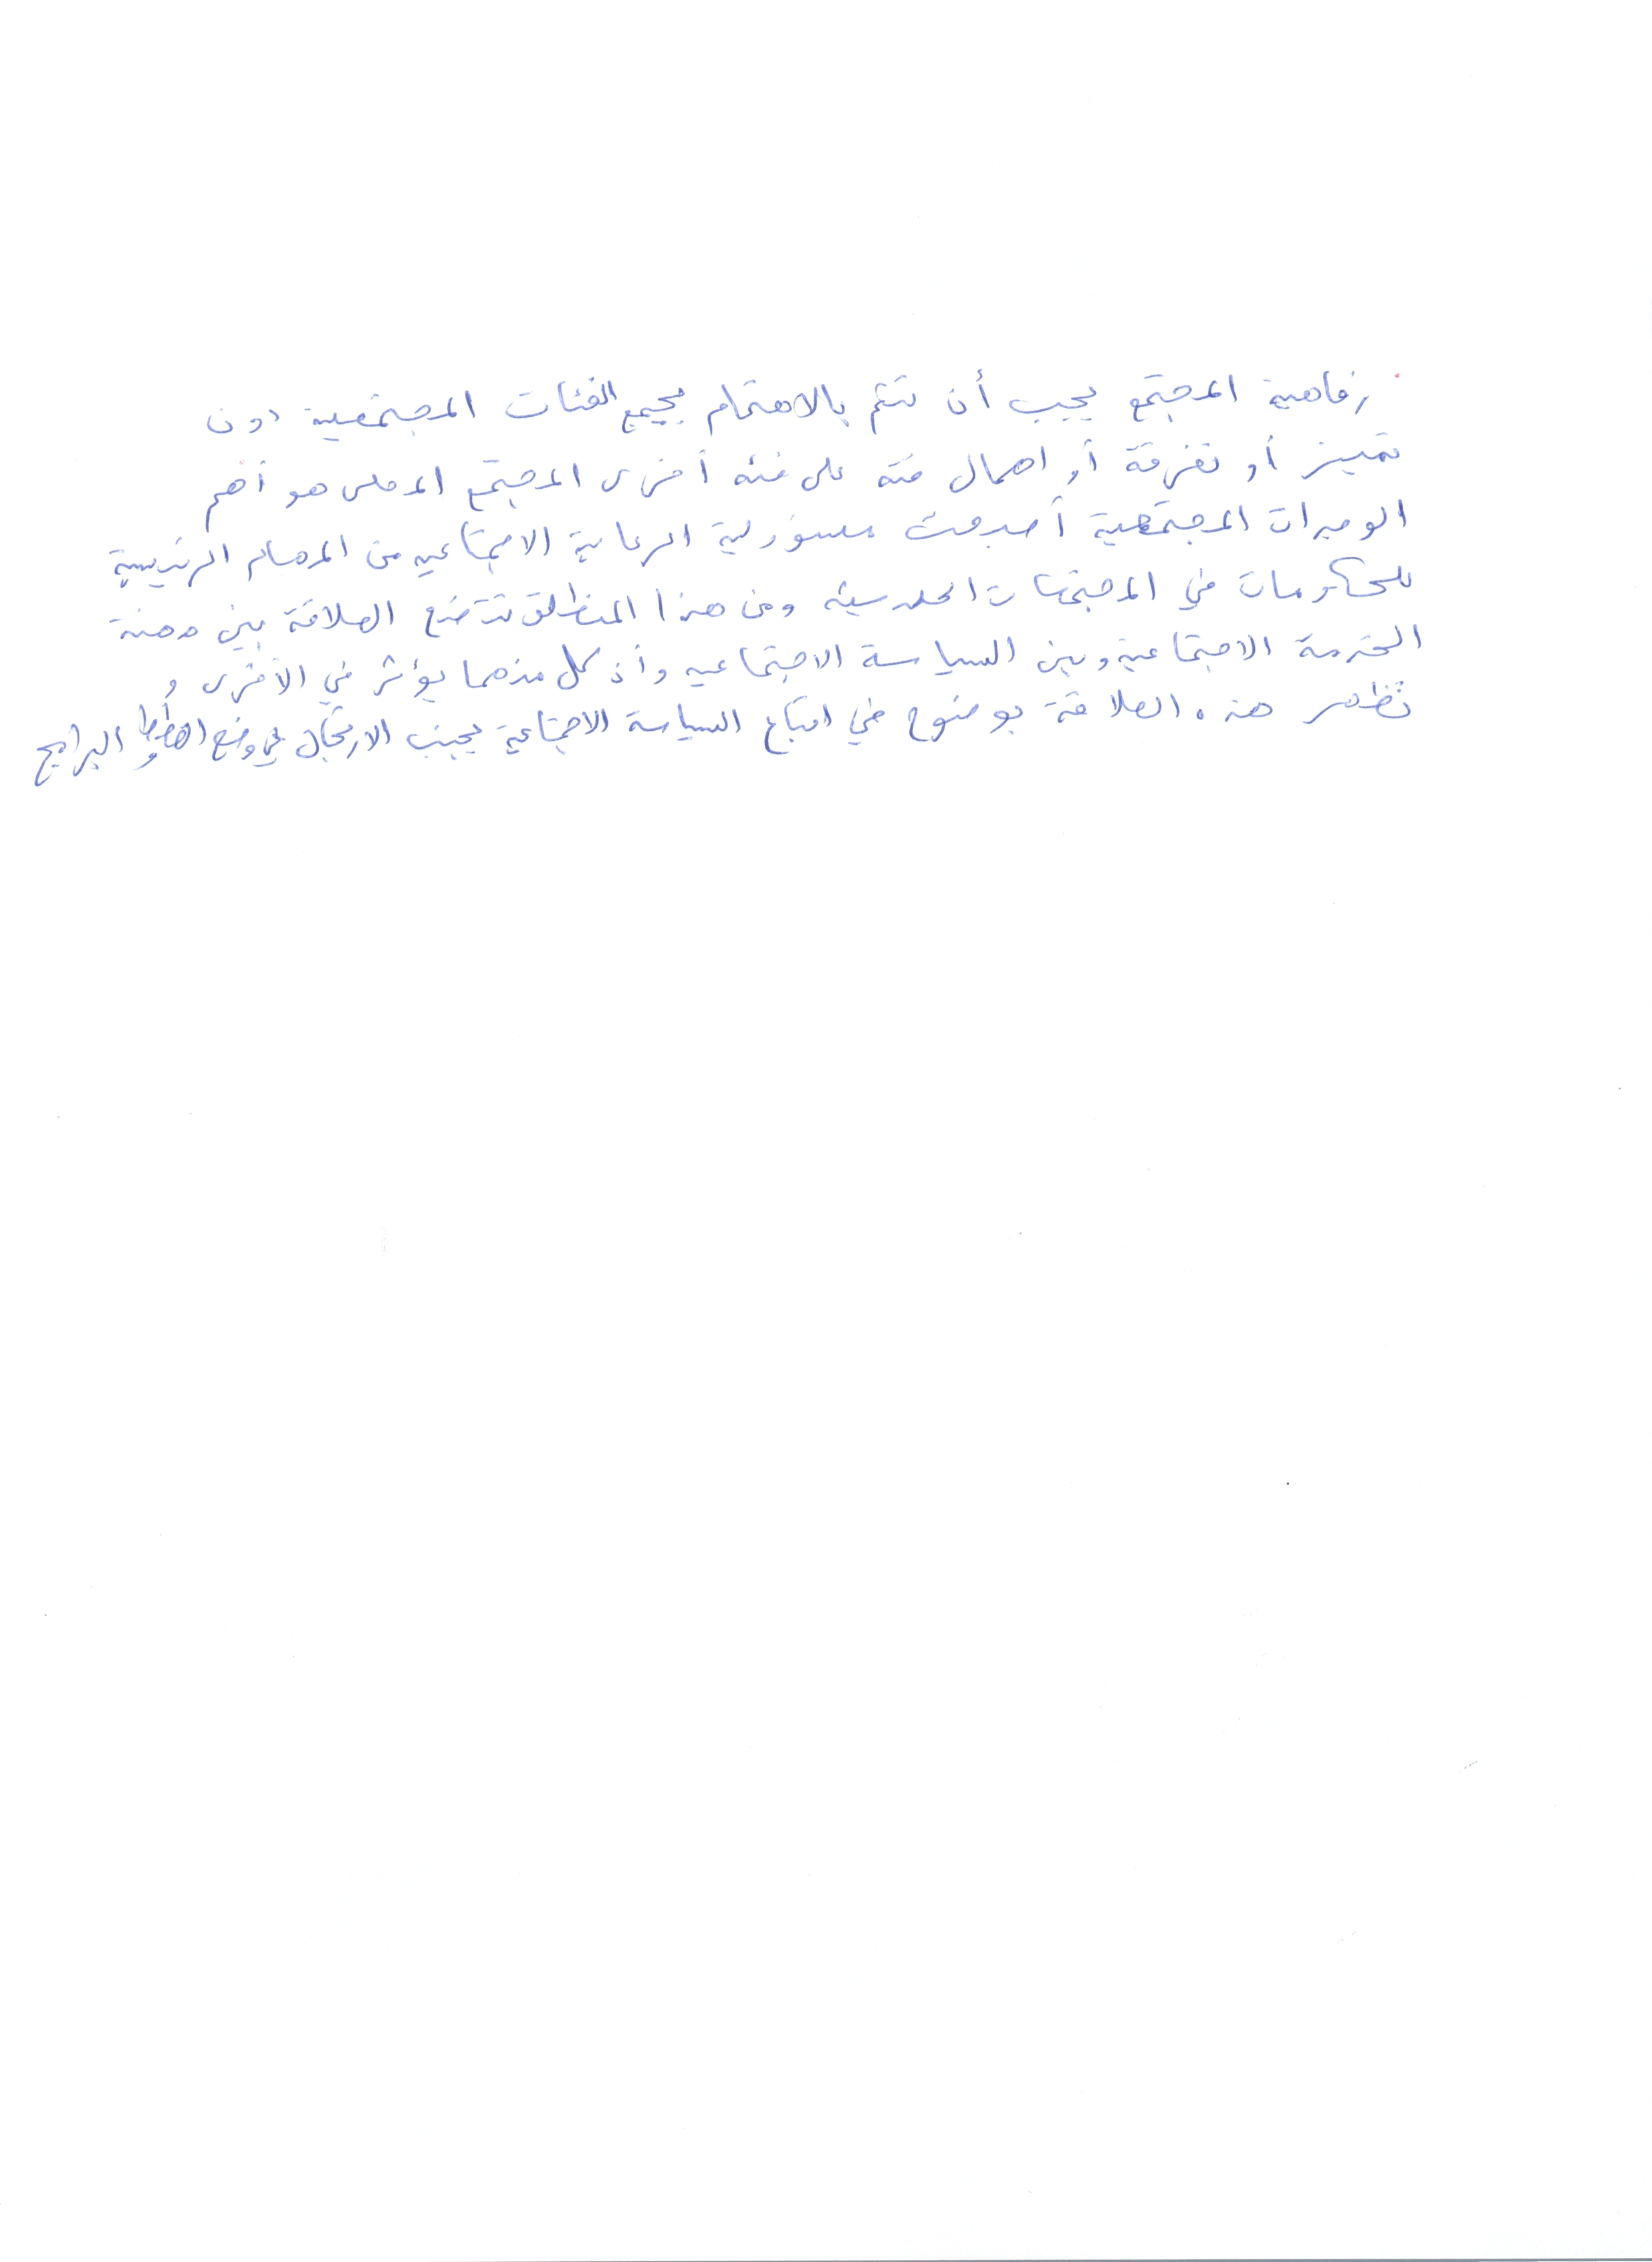 رفاهية المجتمع يجب أن تتم بالاهتمام بجميع الفئات المجتمعية دون
تمييز أو تفرقة أو اهمال فئة على فئه أخرى المجتمع المحلى هو أهم
الوحدات المجتمعية أصبحت مسؤولية الرعاية الاجتماعيه من المهام الرئيسية
للحكومات في المجتمعات الحديثه ومن هذا المنطلق تتضح العلاقة بين مهنة
الخدمة الاجتماعية وبين السياسة الاجتماعيه وأن كل منهما يؤثر في الأخرى و
تظهر هذه العلاقة بوضوح في اتباع السياسة الاجتماعية يجنب الارتجال في وضع الخطط و البرامج